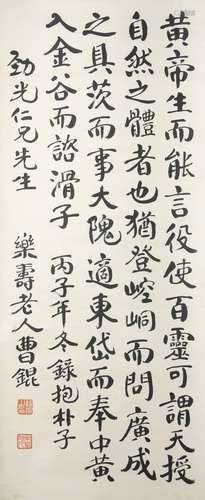 黃帝生而能言役使百靈可謂天授
自然之體者也猶登崆峒而問廣成
之具茨而事大隗適東岱而奉中黃
入金谷而諮滑子 丙子年冬錄抱朴子
勁光仁兄先生
樂壽老人曹錕